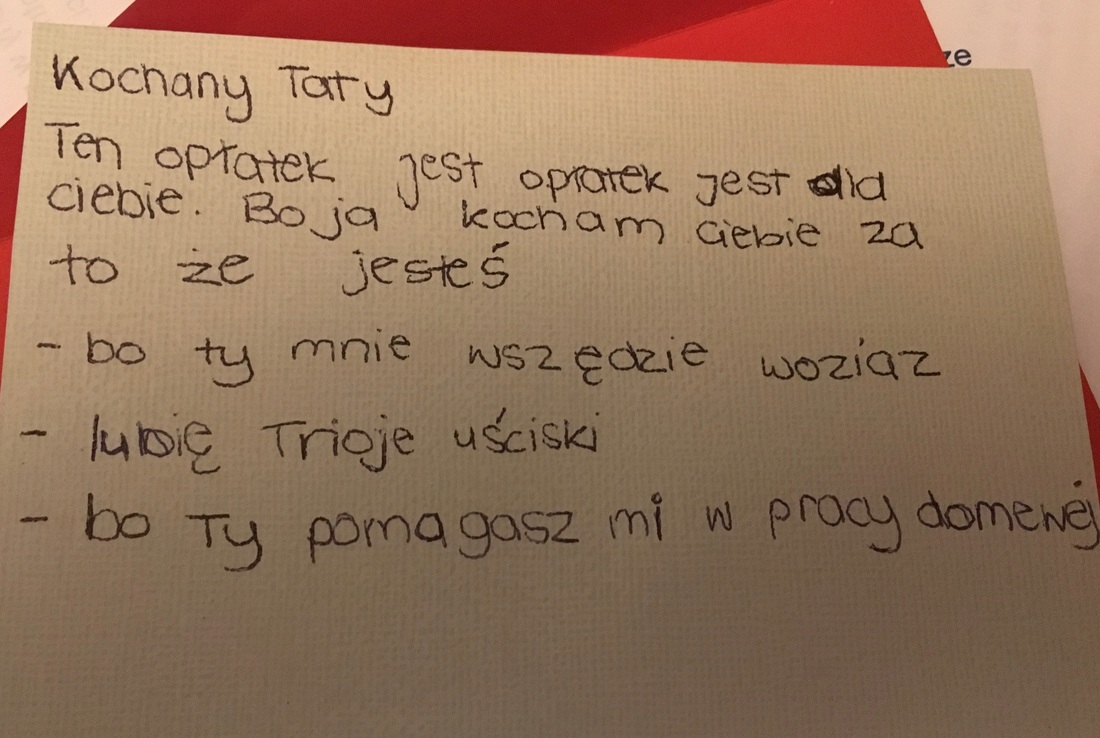 Kochany Taty
ze
Ten opłatek jest opłatek jest dla
ciebie. Bo ja kocham ciebie za
to że jesteś
- bo ty mnie wszędzie woziaz
- lubię Trioje uściski
- bo Ty pomagasz mi w pracy domewej